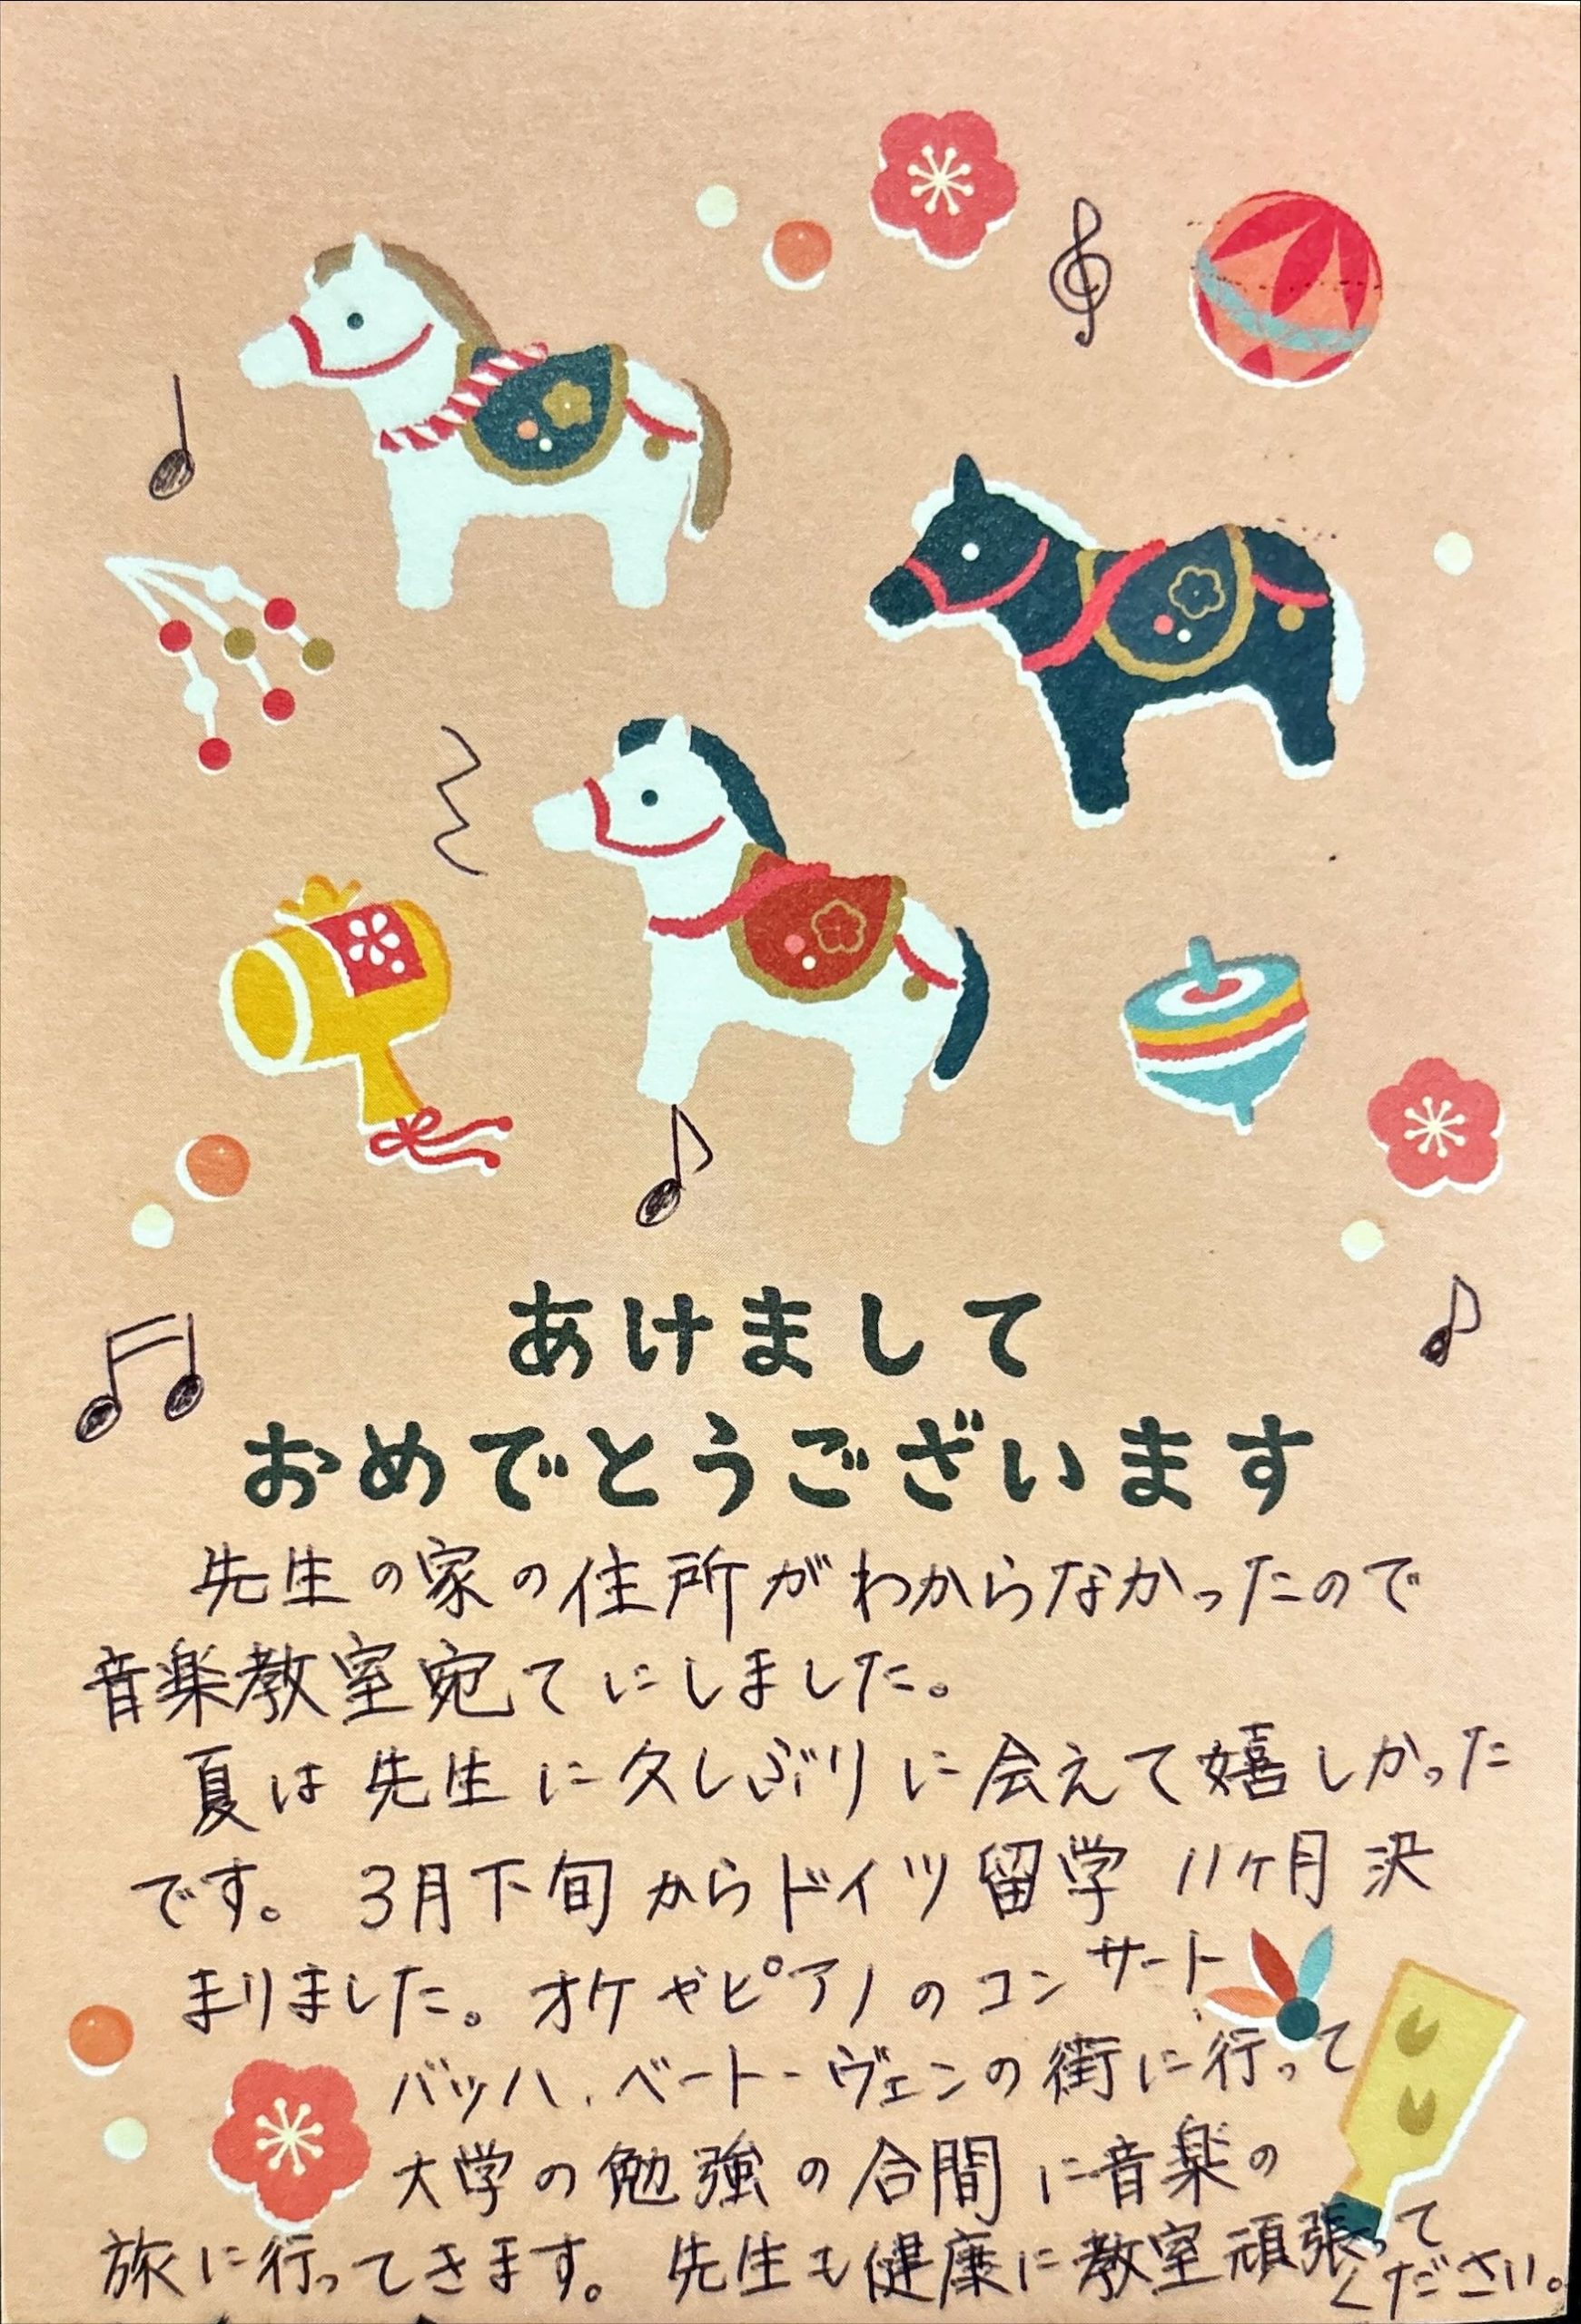 あけまして
おめでとうございます
先生の家の住所がわからなかったので
音楽教室宛てにしました。
夏は先生に久しぶりに会えて嬉しかった
です。 3月下旬からドイツ留学 11ヶ月 決
まりました。オケやピアノのコンサート、
バッハ、ベートーヴェンの街に行って
大学の勉強の合間に音楽の
旅に行ってきます。 先生も健康に教室頑張って
ください。